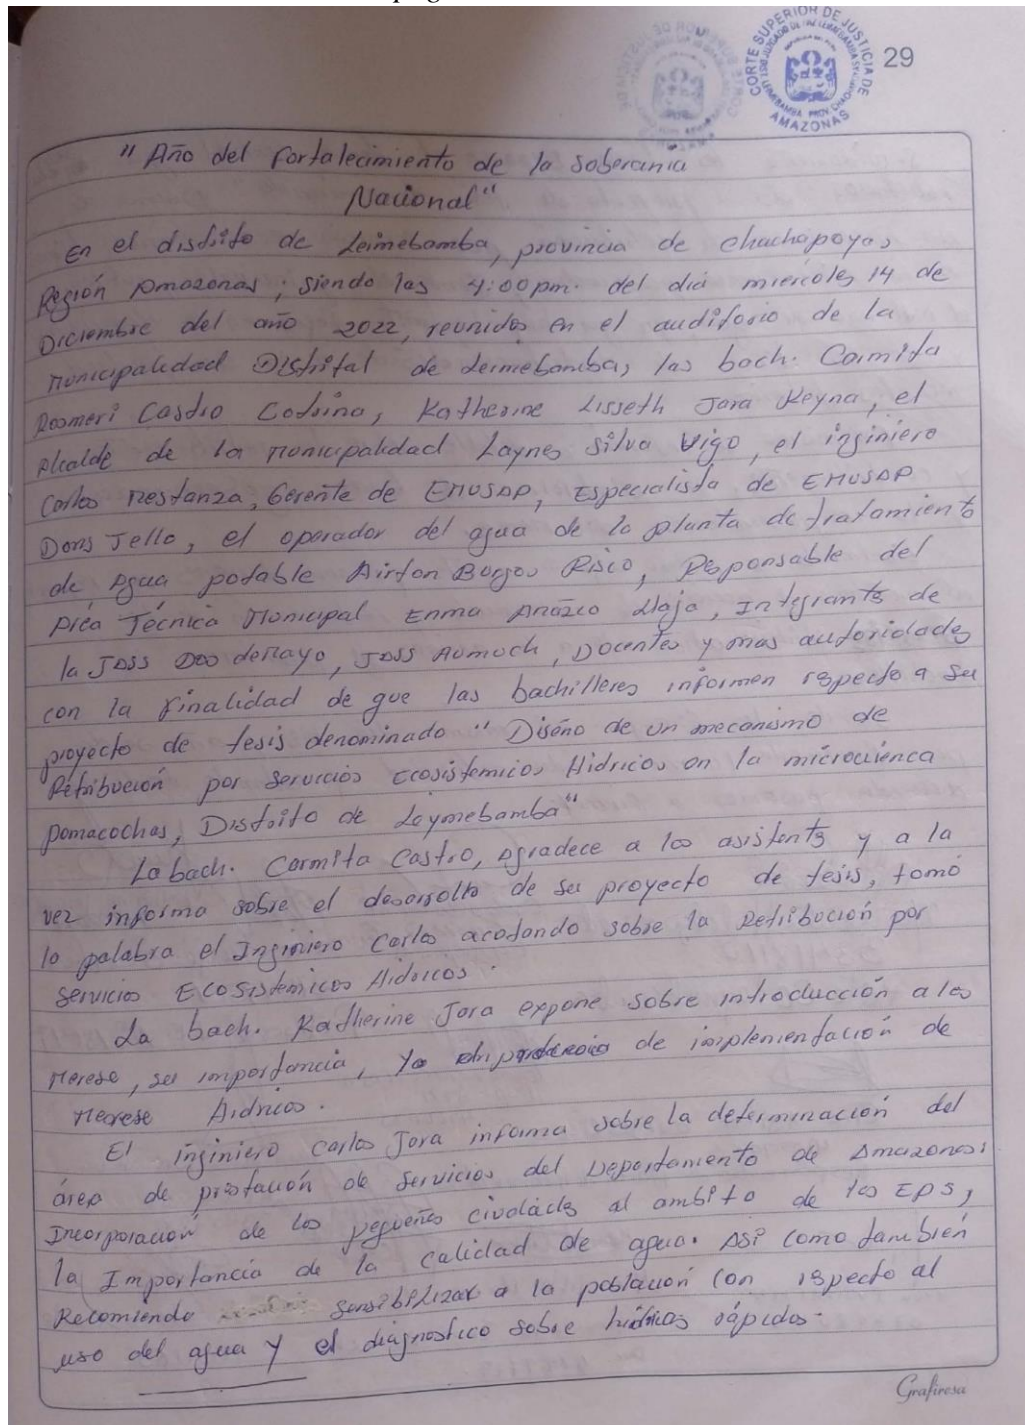 CORTE SUPERIOR DE JUSTICIA DE
AMAZONAS
29
"Año del fortalecimiento de la soberania
Nacional"
En el distrito de Leimebamba, provincia de chachapoyas
Región Amazonas; siendo las 4:00pm. del dia miercoles 14 de
Diciembre del año 2022, reunidos en el auditorio de la
municipalidad Distrital de Leimebamba, las bach. Carmita
Rosmeri Castro Codrina, Katherine Lisseth Jara Reyna, el
Alcalde de la municipalidad Laynes Silva Vigo, el inginiero
Carlos Mestanza, Gerente de EMUSAP, Especialista de EMUSAP
Doris Tello, el operador del agua de la planta de tratamiento
de Agua potable Airton Burgos Risco, Responsable del
Area Técnica Municipal Enma Anazco Llaja, Integrants de
la JASS Dos de Mayo, JASS Aumuch, Docentes y mas autoridades
con la finalidad de que las bachilleres informen respecto a su
proyecto de tesis denominado "Diseño de un mecanismo de
Retribución por servicios Ecosistemicos Hidricos en la microcuenca
Pomacochas, Distrito de Leymebamba"
La bach. Carmita Castro, agradece a los asistents y a la
vez informa sobre el desarrollo de su proyecto de tesis, tomó
la palabra el Inginiero Carlos acotando sobre la Retribución por
servicios Ecosistemicos Hidricos.
La bach. Katherine Jara expone sobre introducción a los
Merese, su importancia, de implementación de
Merese Hidricos.
El inginiero Carlos Jara informa sobre la determinación del
área de prestación de servicios del Departamento de Amazonas:
Incorporación de las pequeñas ciudades al ambito de las EPS,
la Importancia de la calidad de agua. Asi como también
Recomienda sensibilizar a la población con respecto al
uso del agua y el diagnostico sobre hidricos rápidos.
Grafiresa